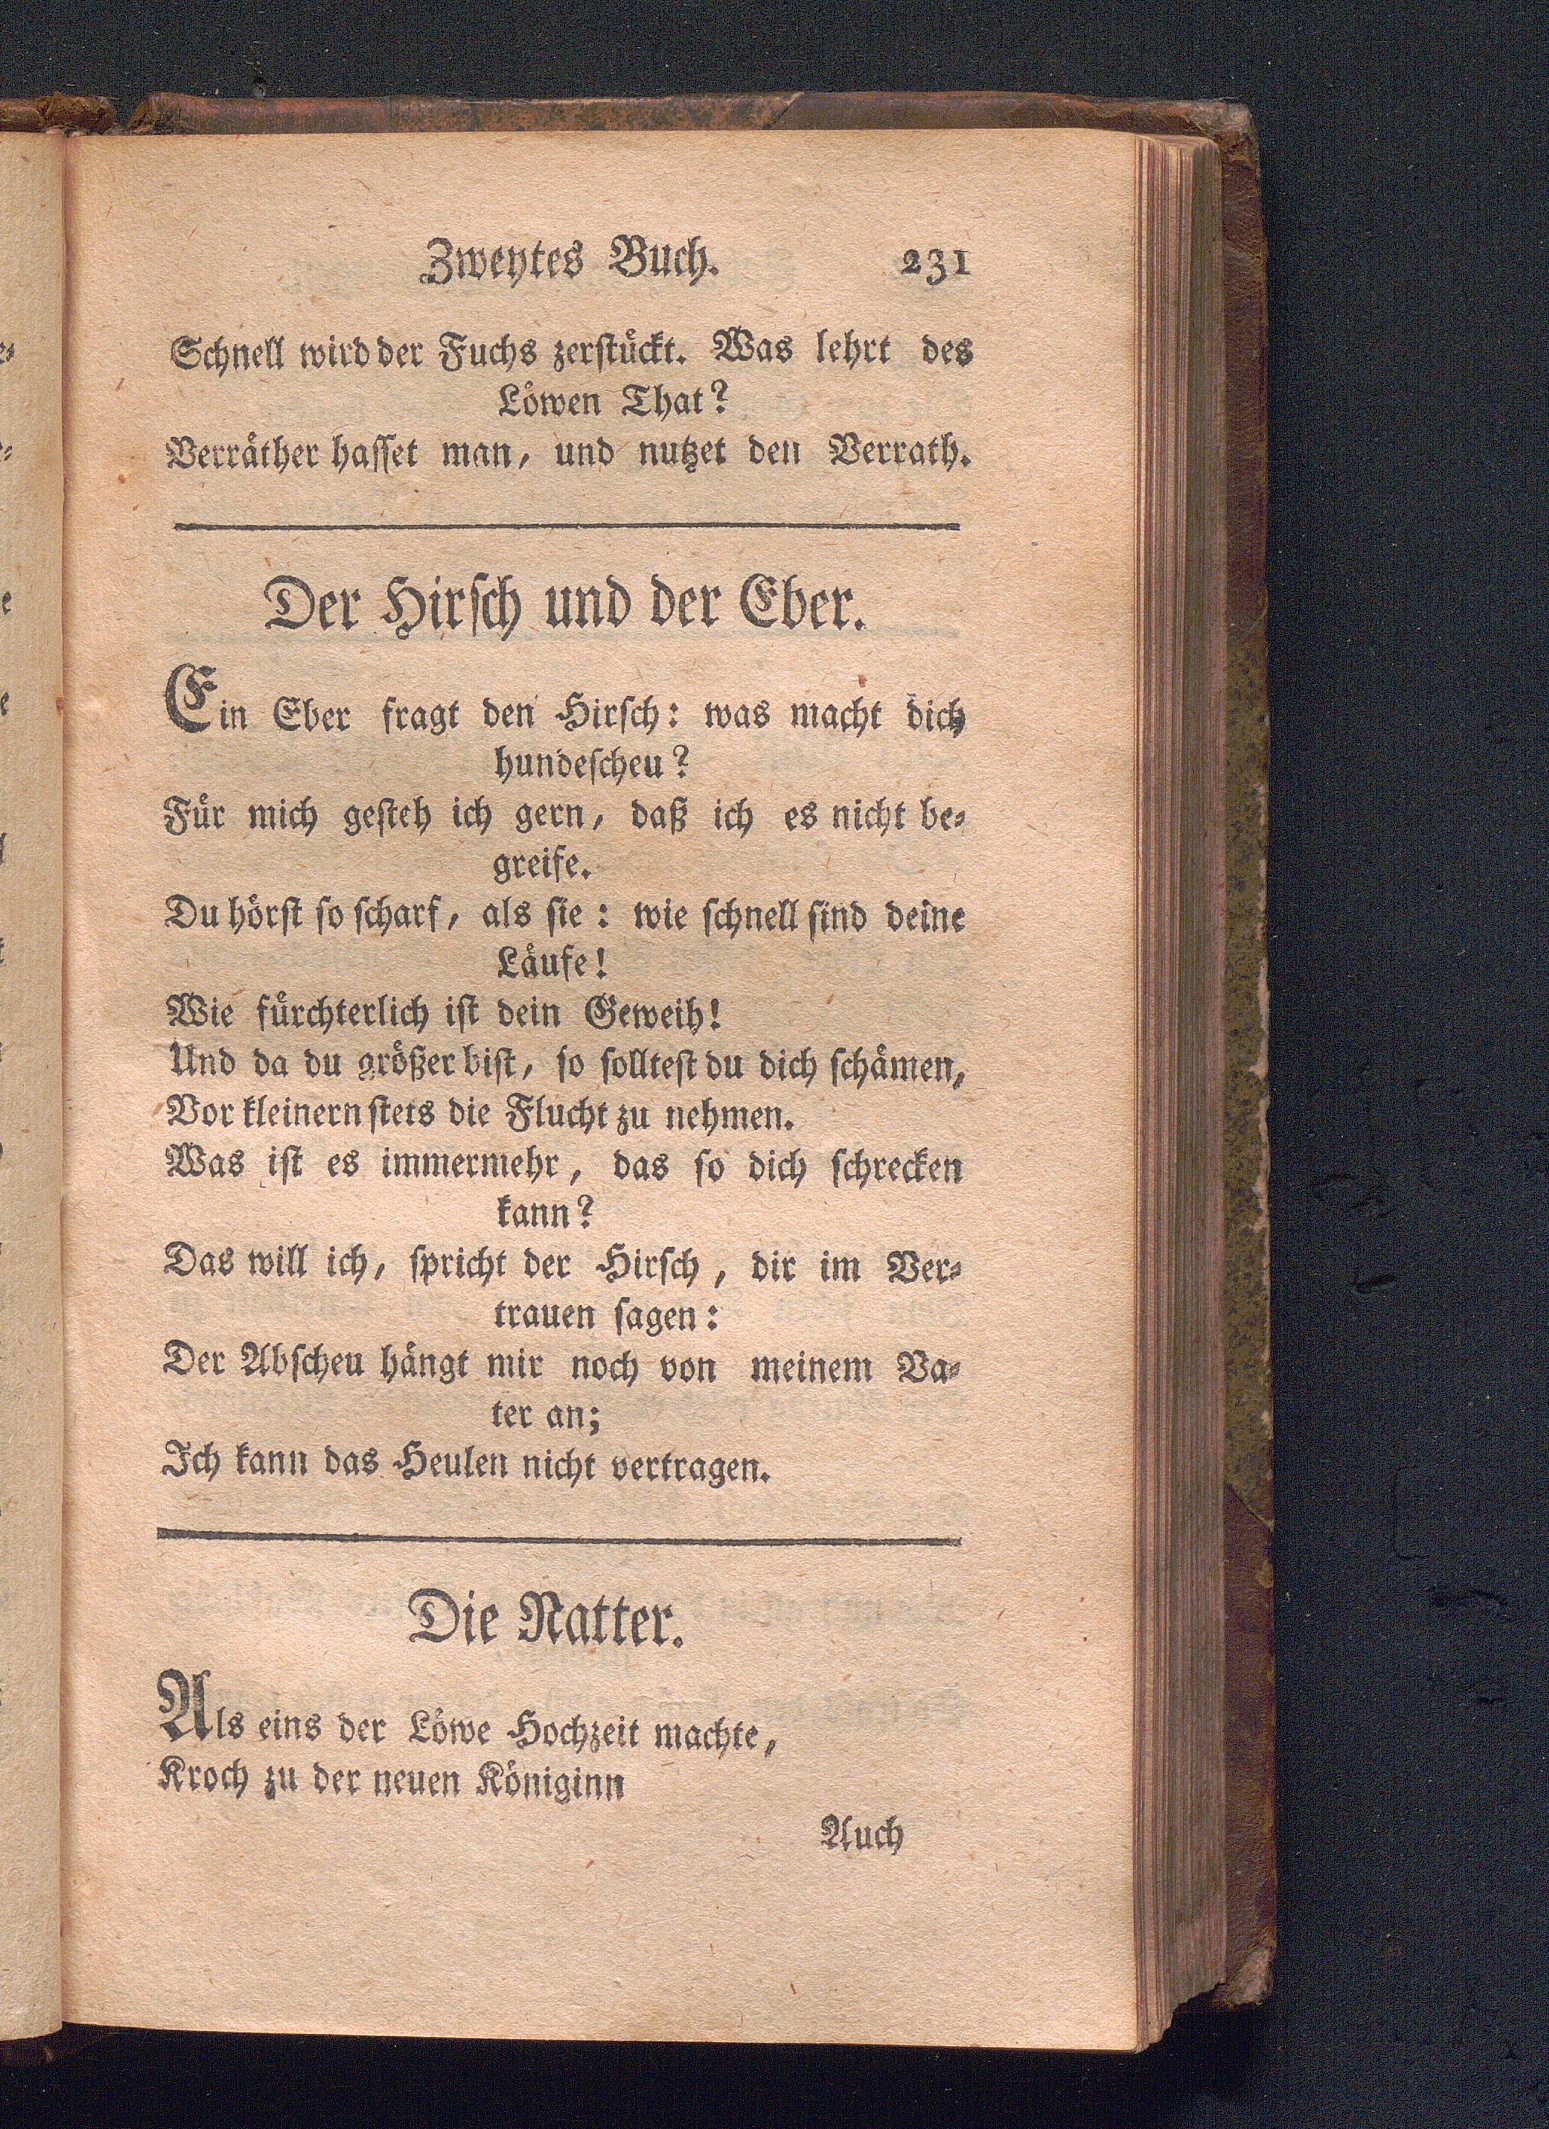 Zweytes Buch. 231
Schnell wird der Fuchs zerſtückt. Was lehrt des
Löwen That?
Verräther haſſet man, und nutzet den Verrath.
Der Hirſch und der Eber.
Ein Eber fragt den Hirſch: was macht dich
hundeſcheu?
Für mich geſteh ich gern, daß ich es nicht be-
greife.
Du hörſt ſo ſcharf, als ſie: wie ſchnell ſind deine
Läufe!
Wie fürchterlich iſt dein Geweih!
Und da du größer biſt, ſo ſollteſt du dich ſchämen,
Vor kleinern ſtets die Flucht zu nehmen.
Was iſt es immermehr, das ſo dich ſchrecken
kann?
Das will ich, ſpricht der Hirſch, dir im Ver-
trauen ſagen:
Der Abſcheu hängt mir noch von meinem Va-
ter an;
Ich kann das Heulen nicht vertragen.
Die Natter.
Als eins der Löwe Hochzeit machte,
Kroch zu der neuen Königinn
Auch